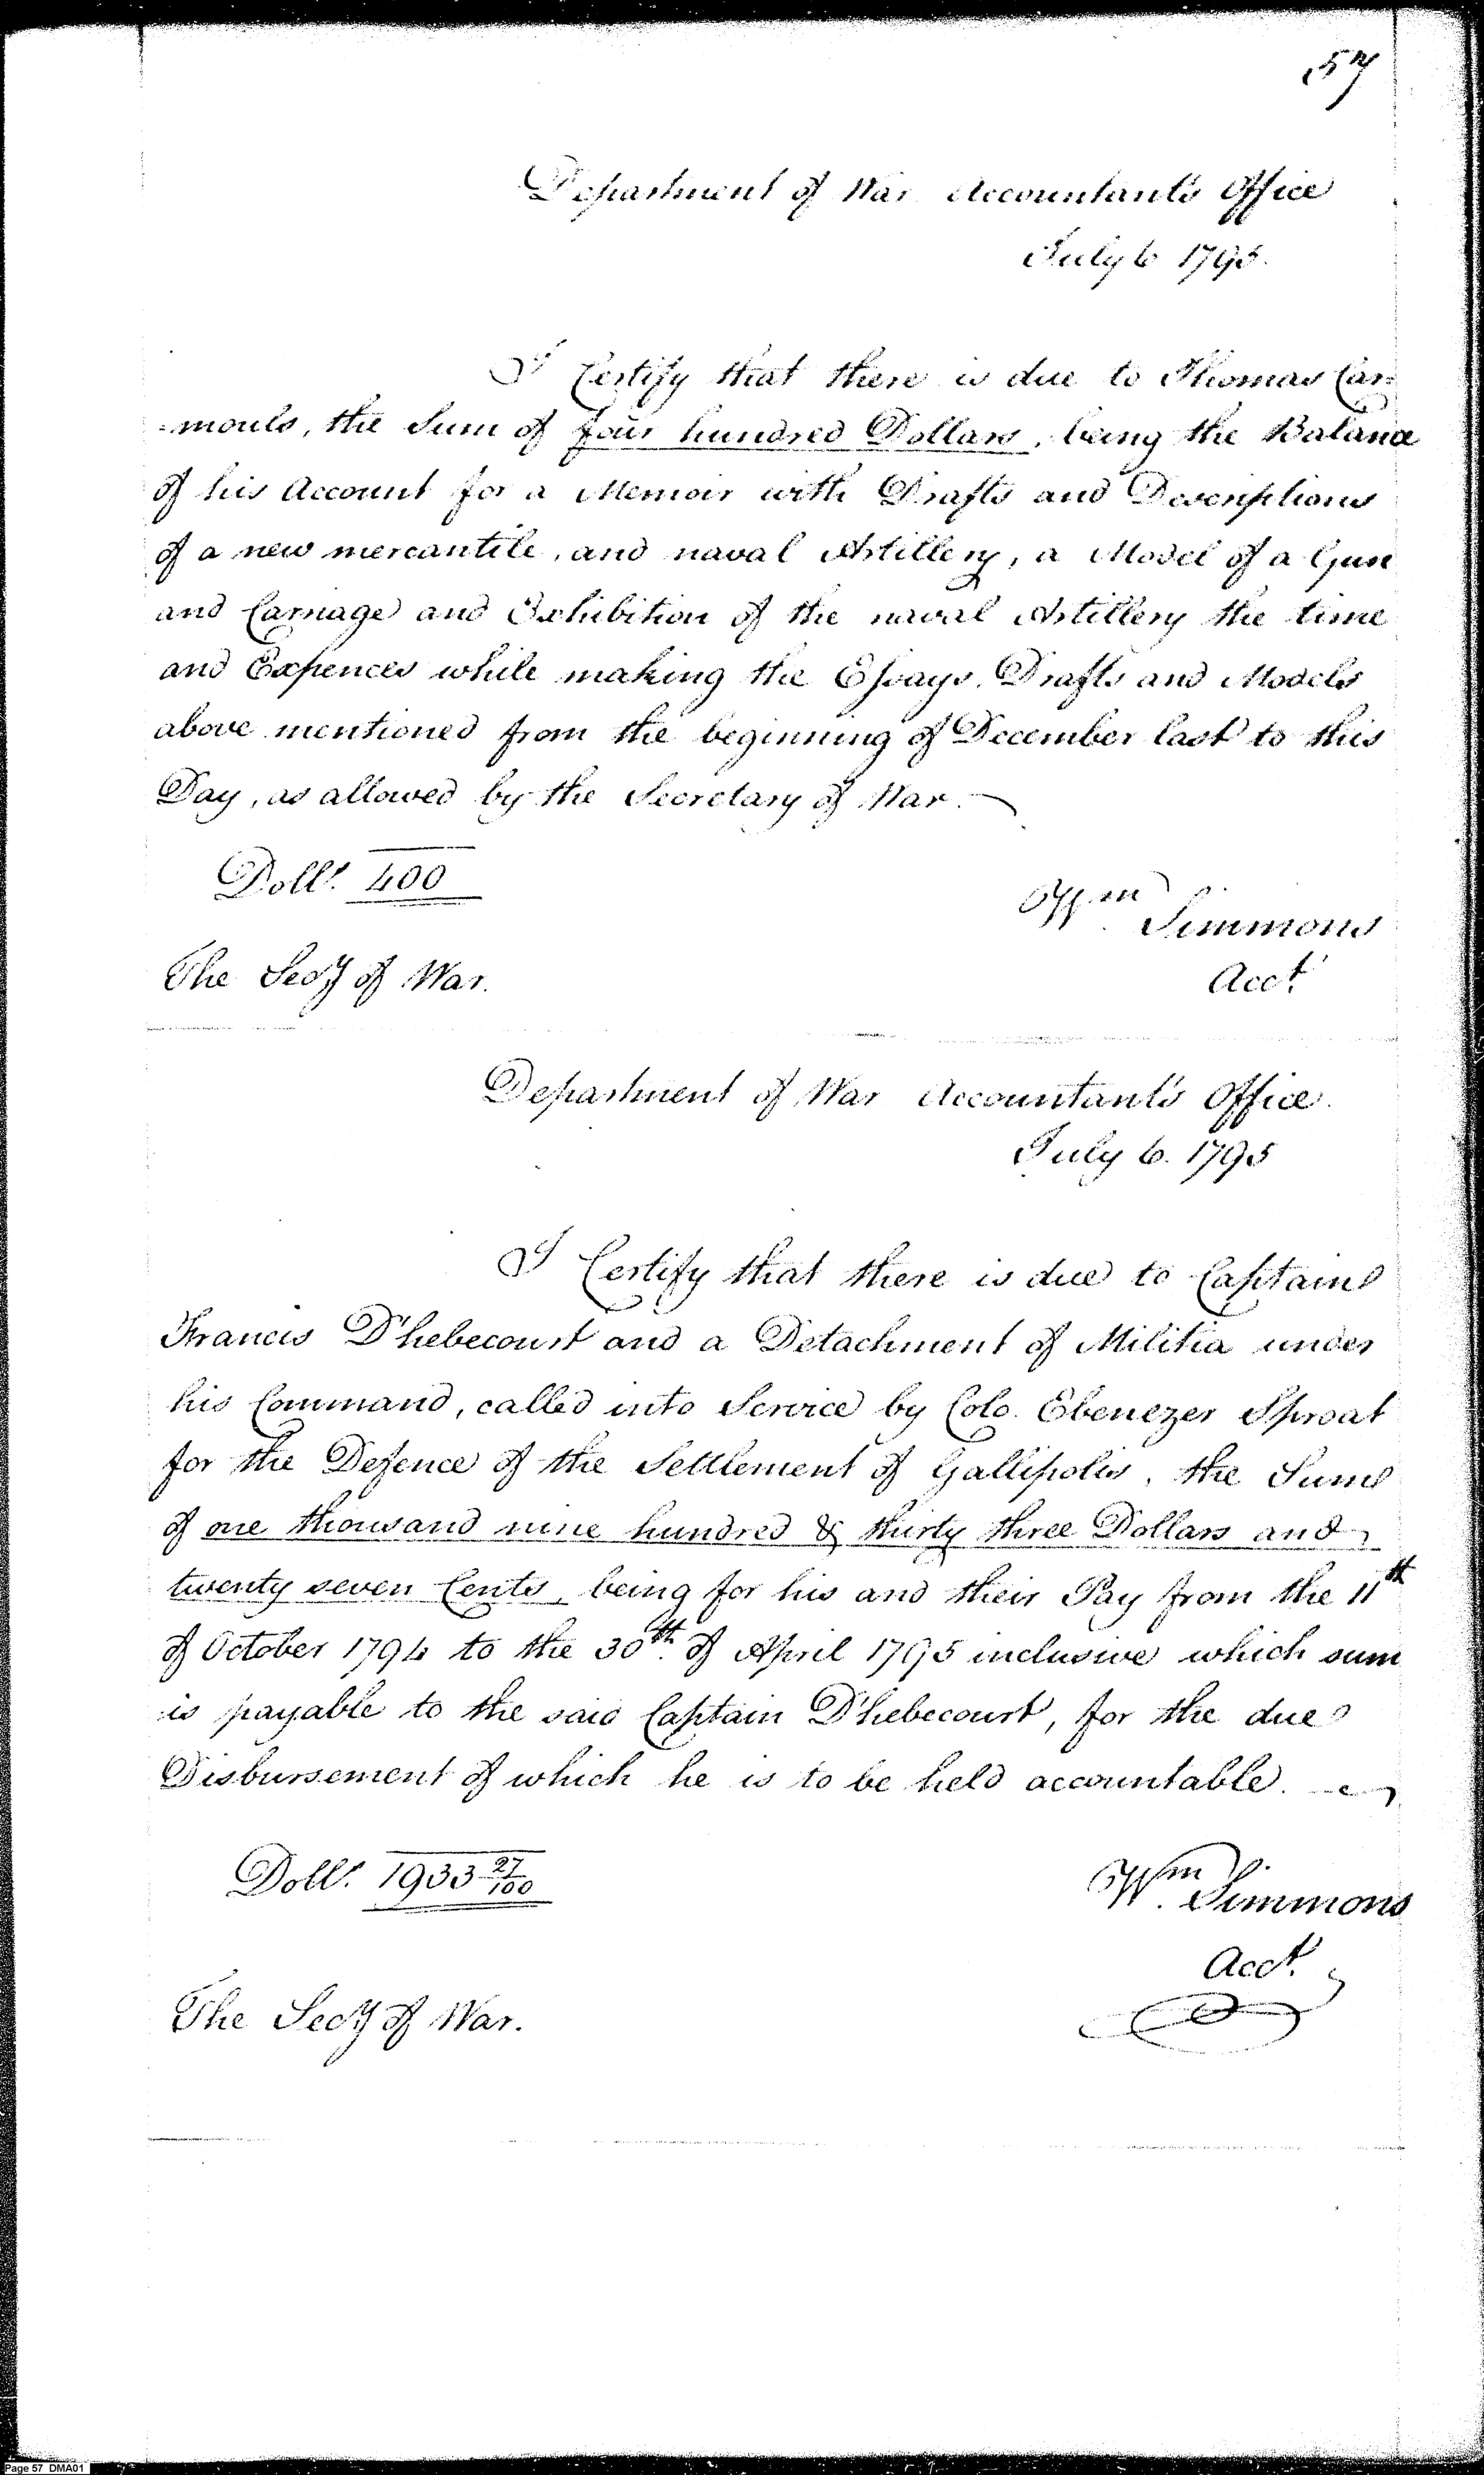 57
Department of War Accountant's Office
July 6 1795.
I Certify that there is due to Thomas Car-
-mouls, the Sum of four hundred Dollars, being the Balance
of his Account for a Memoir with Drafts and Descriptions
of a new mercantile, and naval Artillery, a Model of a Gun
and Carriage and Exhibition of the naval Artillery the time
and Expences while making the Essays, Drafts and Models
above mentioned from the beginning of December last to this
Day, as allowed by the Secretary of War.
Dolls. 400
Wm. Simmons
The Secy of War.
Acct.
Department of War Accountant's Office.
July 6. 1795
I Certify that there is due to Captain
Francis D'hebecourt and a Detachment of Militia under
his Command, called into Service by Colo. Ebenezer Sproat
for the Defence of the Settlement of Gallipolis, the Sum
of one thousand nine hundred & thirty three Dollars and
twenty seven Cents, being for his and their Pay from the 11th
of October 1794 to the 30th. of April 1795 inclusive which sum
is payable to the said Captain D'hebecourt, for the due
Disbursement of which he is to be held accountable.
Dolls. 1933 27/100
Wm. Simmons
Acct.
The Secy of War.
Page 57 DMA01